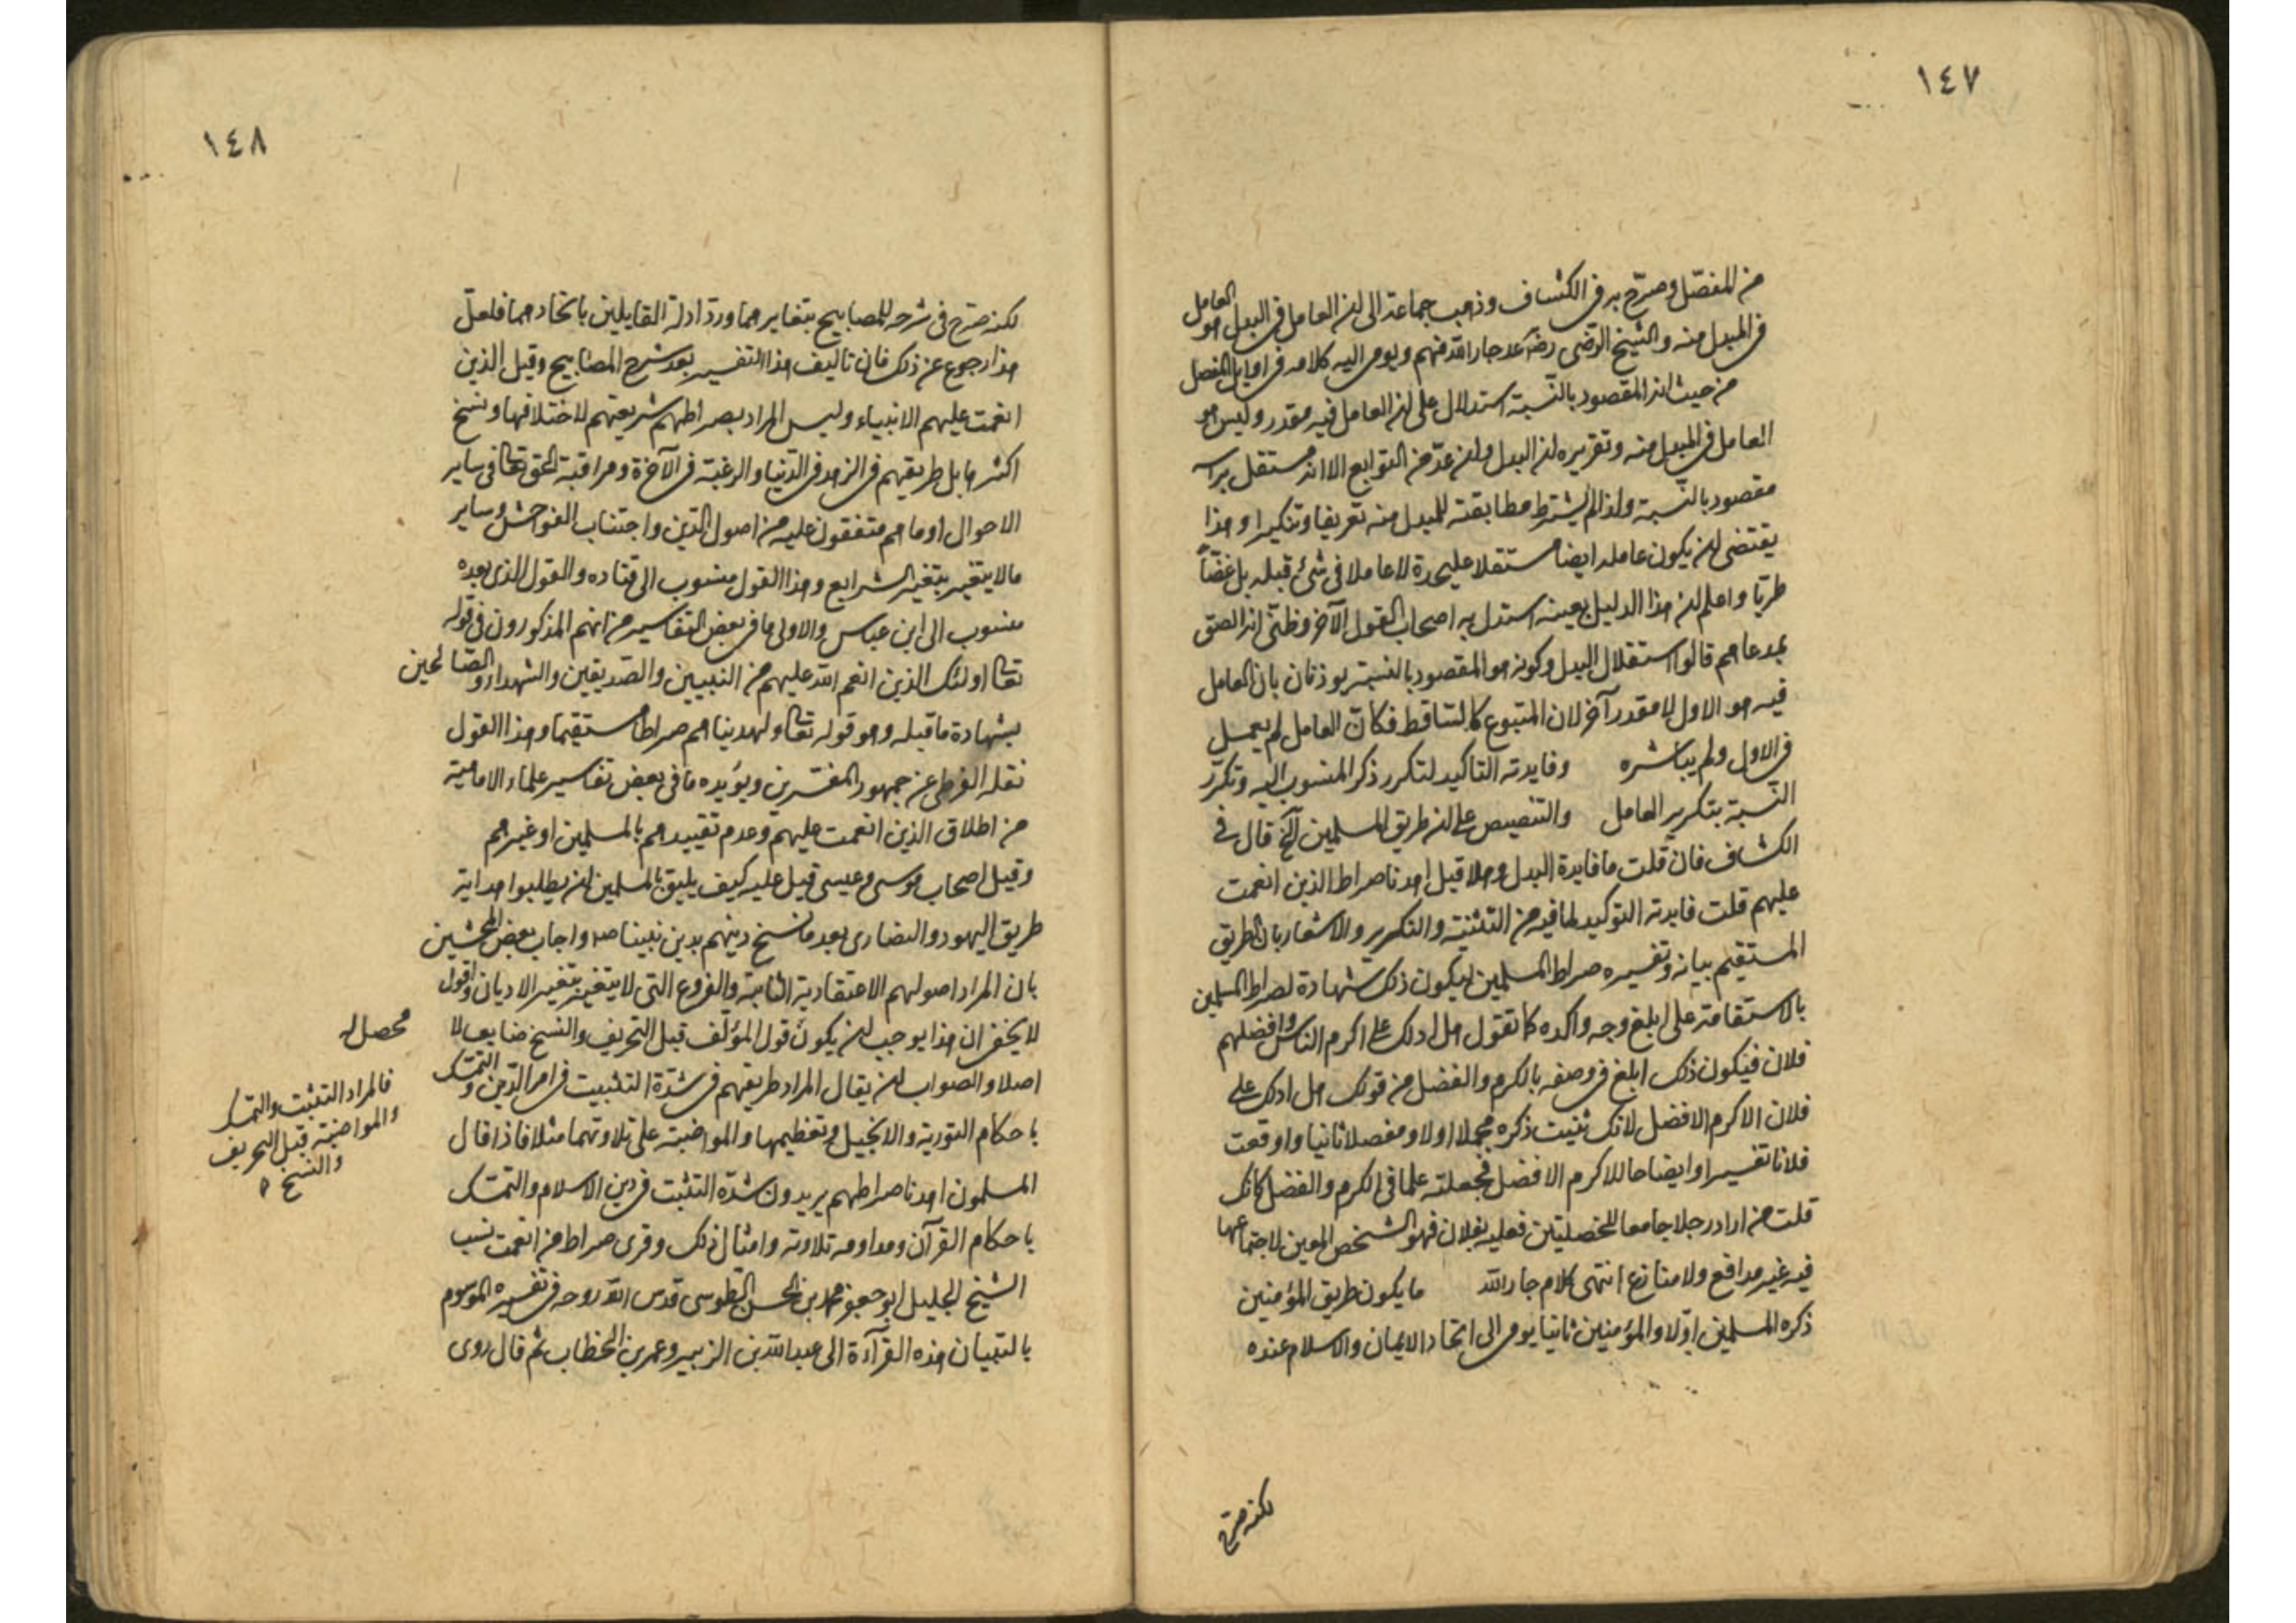 ١٤٧
من المفصّل وصرّح به في الكشاف وذهب جماعة الى ان العامل في البدل هو العامل
في المبدل منه والشيخ الرّضى رضه عد جار الله منهم ويومى اليه كلامه في اوايل المفصل
من حيث انه المقصود بالنّسبة استدلال على ان العامل فيه مقدر وليس هو
العامل في المبدل منه وتقريره ان البدل وان عدّ من التوابع الا انه مستقل براسه
مقصود بالنّسبة ولذا لم يشترط مطابقته للمبدل منه تعريفا وتنكيرا وهذا
يقتضى ان يكون عامله ايضا مستقلا عليحدة لا عاملا في شئ قبله بل غضّاً
طريّا واعلم ان هذا الدليل بعينه استدل به اصحاب القول الآخر وظنّى انه الصق
بمدعاهم قالوا استقلال البدل وكونه هو المقصود بالنسبة يوذنان بان العامل
فيه هو الاول لا مقدر آخر لان المتبوع كالساقط فكان العامل لم يعمل
في الاول ولم يباشره وفايدته التاكيد لتكرر ذكر المنسوب اليه وتكرّر
النّسبة بتكرير العامل والتنصيص على ان طريق المسلمين آلخ قال في
الكشاف فان قلت ما فايدة البدل وهلا قيل اهدنا صراط الذين انعمت
عليهم قلت فايدته التوكيد لما فيه من التثنية والتكرير والاشعار بان الطريق
المستقيم بيانه وتفسيره صراط المسلمين ليكون ذلك شهادة لصراط المسلمين
بالاستقامة على ابلغ وجه واكده كما تقول هل ادلك على اكرم الناس وافضلهم
فلان فيكون ذلك ابلغ في وصفه بالكرم والفضل من قولك هل ادلك على
فلان الاكرم الافضل لانك ثنيت ذكره مجملا اولا ومفصلا ثانيا واوقعت
فلانا تفسيرا وايضاحا للاكرم الافضل فجعلته علما في الكرم والفضل كانك
قلت من اراد رجلا جامعا للخصلتين فعليه بفلان فهو الشخص المعين لاجتماعهما
فيه غير مدافع ولا منازع انتهى كلام جار الله ما يكون طريق المؤمنين
ذكره المسلمين اوّلا والمؤمنين ثانيا يومى الى اتحاد الايمان والاسلام عنده
لكنه صرّح
١٤٨
لكنه صرّح في شرحه للمصابيح بتغايرهما وردّ ادلة القايلين باتحادهما فلعلّ
هذا رجوع عن ذلك فان تاليف هذا التفسير بعد شرح المصابيح وقيل الذين
انعمت عليهم الانبياء وليس المراد بصراطهم شريعتهم لاختلافها ونسخ
اكثرها بل طريقهم في الزهد في الدّنيا والرغبة في الآخرة ومراقبة الحق تعالى في ساير
الاحوال او ما هم متفقون عليه من اصول الدّين واجتناب الفواحش وساير
ما لا يتغير بتغير الشرايع وهذا القول منسوب الى قتاده والقول الذى بعده
منسوب الى ابن عباس والاولى ما في بعض التفاسير من انهم المذكورون في قوله
تعالى اولئك الذين انعم الله عليهم من النبيين والصّديقين والشهداء والصّالحين
بشهادة ما قبله وهو قوله تعالى ولهديناهم صراطا مستقيما وهذا القول
نقله القرطبى عن جمهور المفسّرين ويؤيده ما في بعض تفاسير علماء الامامية
من اطلاق الذين انعمت عليهم وعدم تقييدهم بالمسلمين او غيرهم
وقيل اصحاب موسى وعيسى قيل عليه كيف يليق بالمسلمين ان يطلبوا هداية
طريق اليهود والنصارى بعد ما نسخ دينهم بدين نبيّنا صه واجاب بعض المحشين
بان المراد اصولهم الاعتقادية الثابتة والفروع التى لا يتغير بتغير الاديان واقول
لا يخفى ان هذا يوجب ان يكون قول المؤلّف قبل التحريف والنسخ ضايعا لا محصل له
اصلا والصواب ان يقال المراد طريقهم في شدّة التثبيت في امر الدّين والتمسّك
باحكام التورية والانجيل وتعظيمها والمواضبة على تلاوتهما مثلا فاذا قال
المسلمون اهدنا صراطهم يريدون شدّة التثبت في دين الاسلام والتمسّك
باحكام القرآن ومداومه تلاوته وامثال ذلك وقرى صراط من انعمت نسب
الشيخ الجليل ابو جعفر محمد بن الحسن الطوسى قدس الله روحه في تفسيره الموسوم
بالتبيان هذه القرآءة الى عبد الله بن الزبير وعمر بن الخطاب ثم قال روى
فالمراد التثبت والتمسك
والمواضبة قبل التحريف
والنسخ